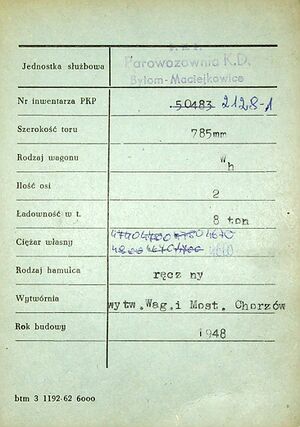 P.K.P.
Jednostka służbowa Parowozownia K.D.
Bytom-Maciejkowice
Nr inwentarza PKP 50483 2128-1
Szerokość toru 785mm
Rodzaj wagonu Wh
Ilość osi 2
Ładowność w t. 8 ton
Ciężar własny 4670
Rodzaj hamulca ręcz ny
Wytwórnia wytw.Wag.i Most. Chorzów
Rok budowy 1948
btm 3 1192-62 6000